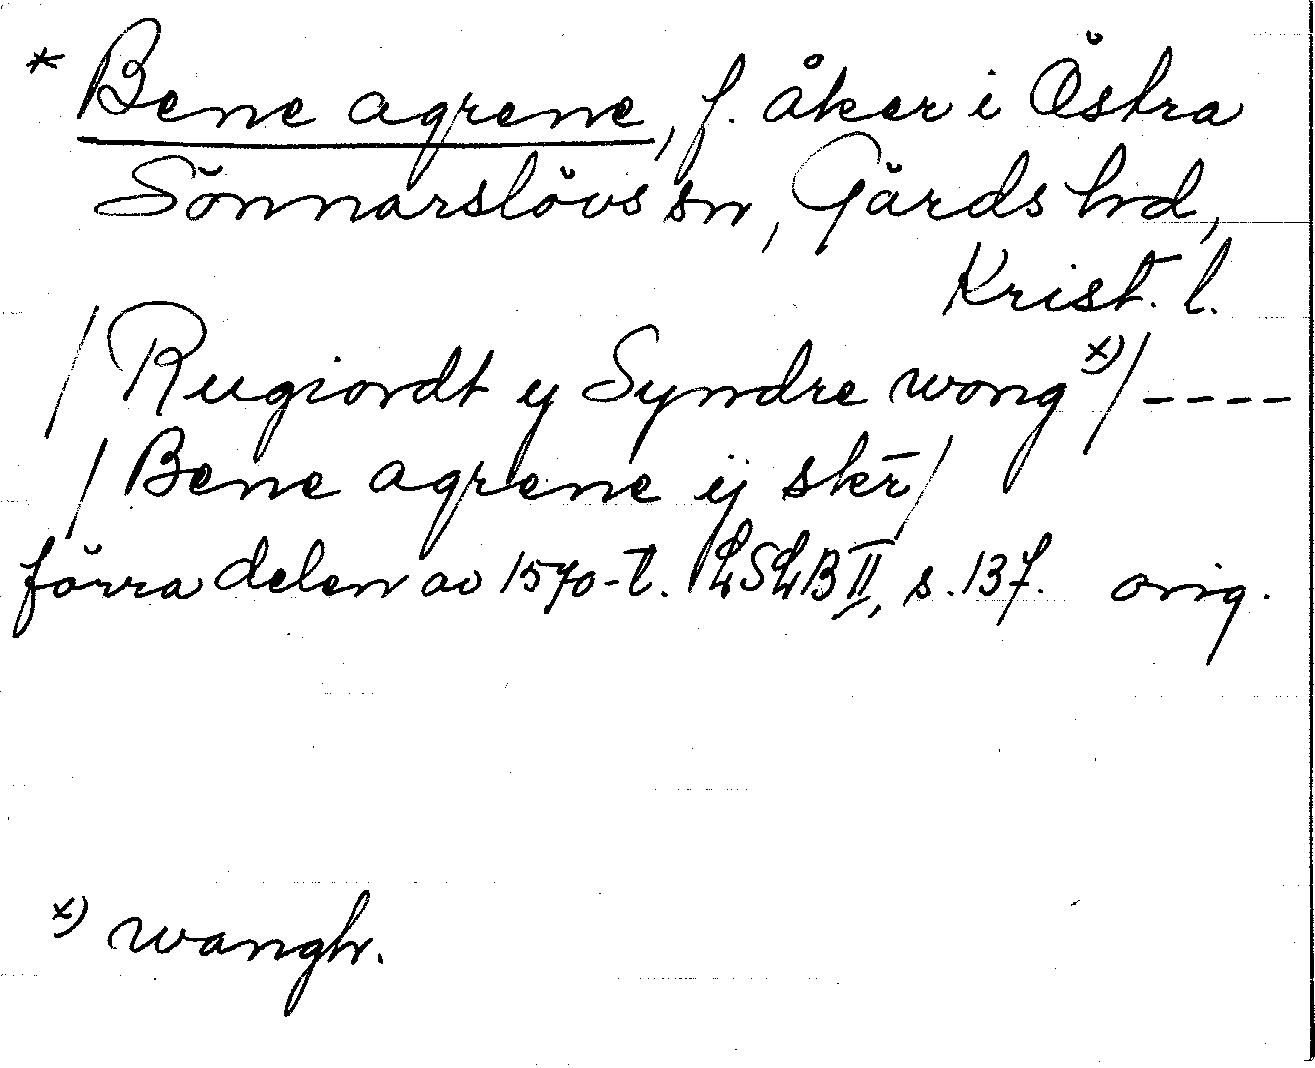 * Bene agrene, f. åker i Östra
Sönnarslövs sn, Gärds hd,
Krist. l.
/ Rugiordt y Syndre wong x) / ----
/ Bene agrene ij skr̄ /
förra delen av 1570-t. LSLB II, s. 137. orig.
x) wangh.